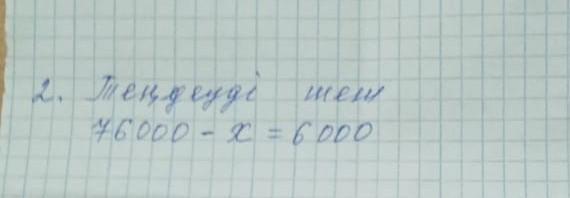 2. Теңдеуді шеш
76000 - x = 6000